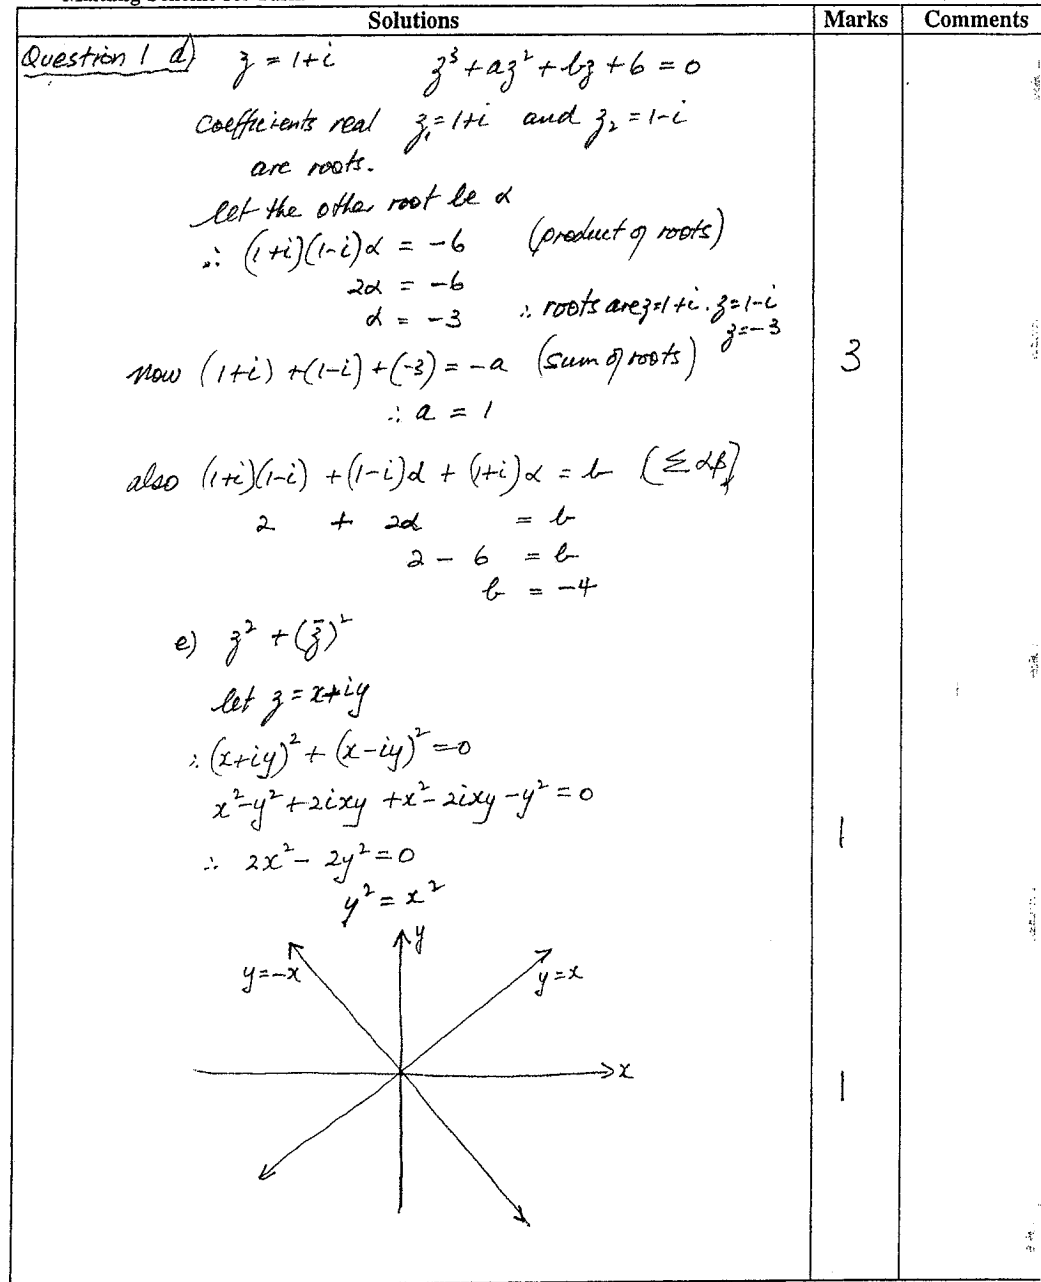 Solutions Marks Comments
Question 1 d) z = 1+i z³ + az² + bz + 6 = 0
coefficients real z₁ = 1+i and z₂ = 1-i
are roots.
let the other root be α
∴ (1+i)(1-i)α = -6 (product of roots)
2α = -6
α = -3 ∴ roots are z=1+i, z=1-i
z=-3
now (1+i) + (1-i) + (-3) = -a (sum of roots) 3
∴ a = 1
also (1+i)(1-i) + (1-i)α + (1+i)α = b (Σαβ)
2 + 2α = b
2 - 6 = b
b = -4
e) z² + (z̄)²
let z = x+iy
∴ (x+iy)² + (x-iy)² = 0
x²-y²+2ixy +x²-2ixy-y² = 0
∴ 2x² - 2y² = 0 1
y² = x²
y
y=-x y=x
x
1